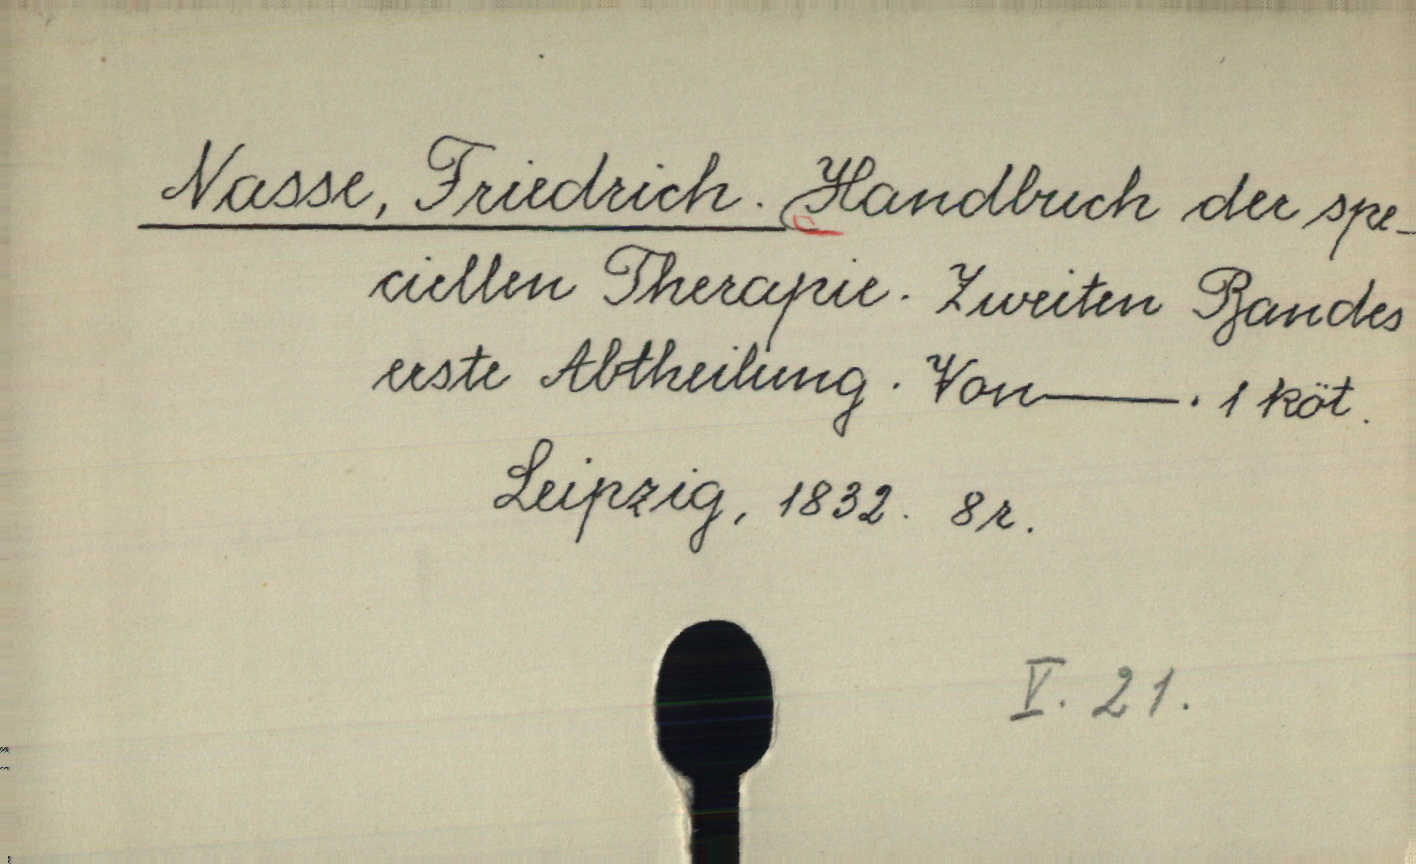 Nasse, Friedrich. Handbuch der spe-
ciellen Therapie. Zweiten Bandes
erste Abtheilung. Von ——. 1 köt.
Leipzig, 1832. 8r.
V. 21.